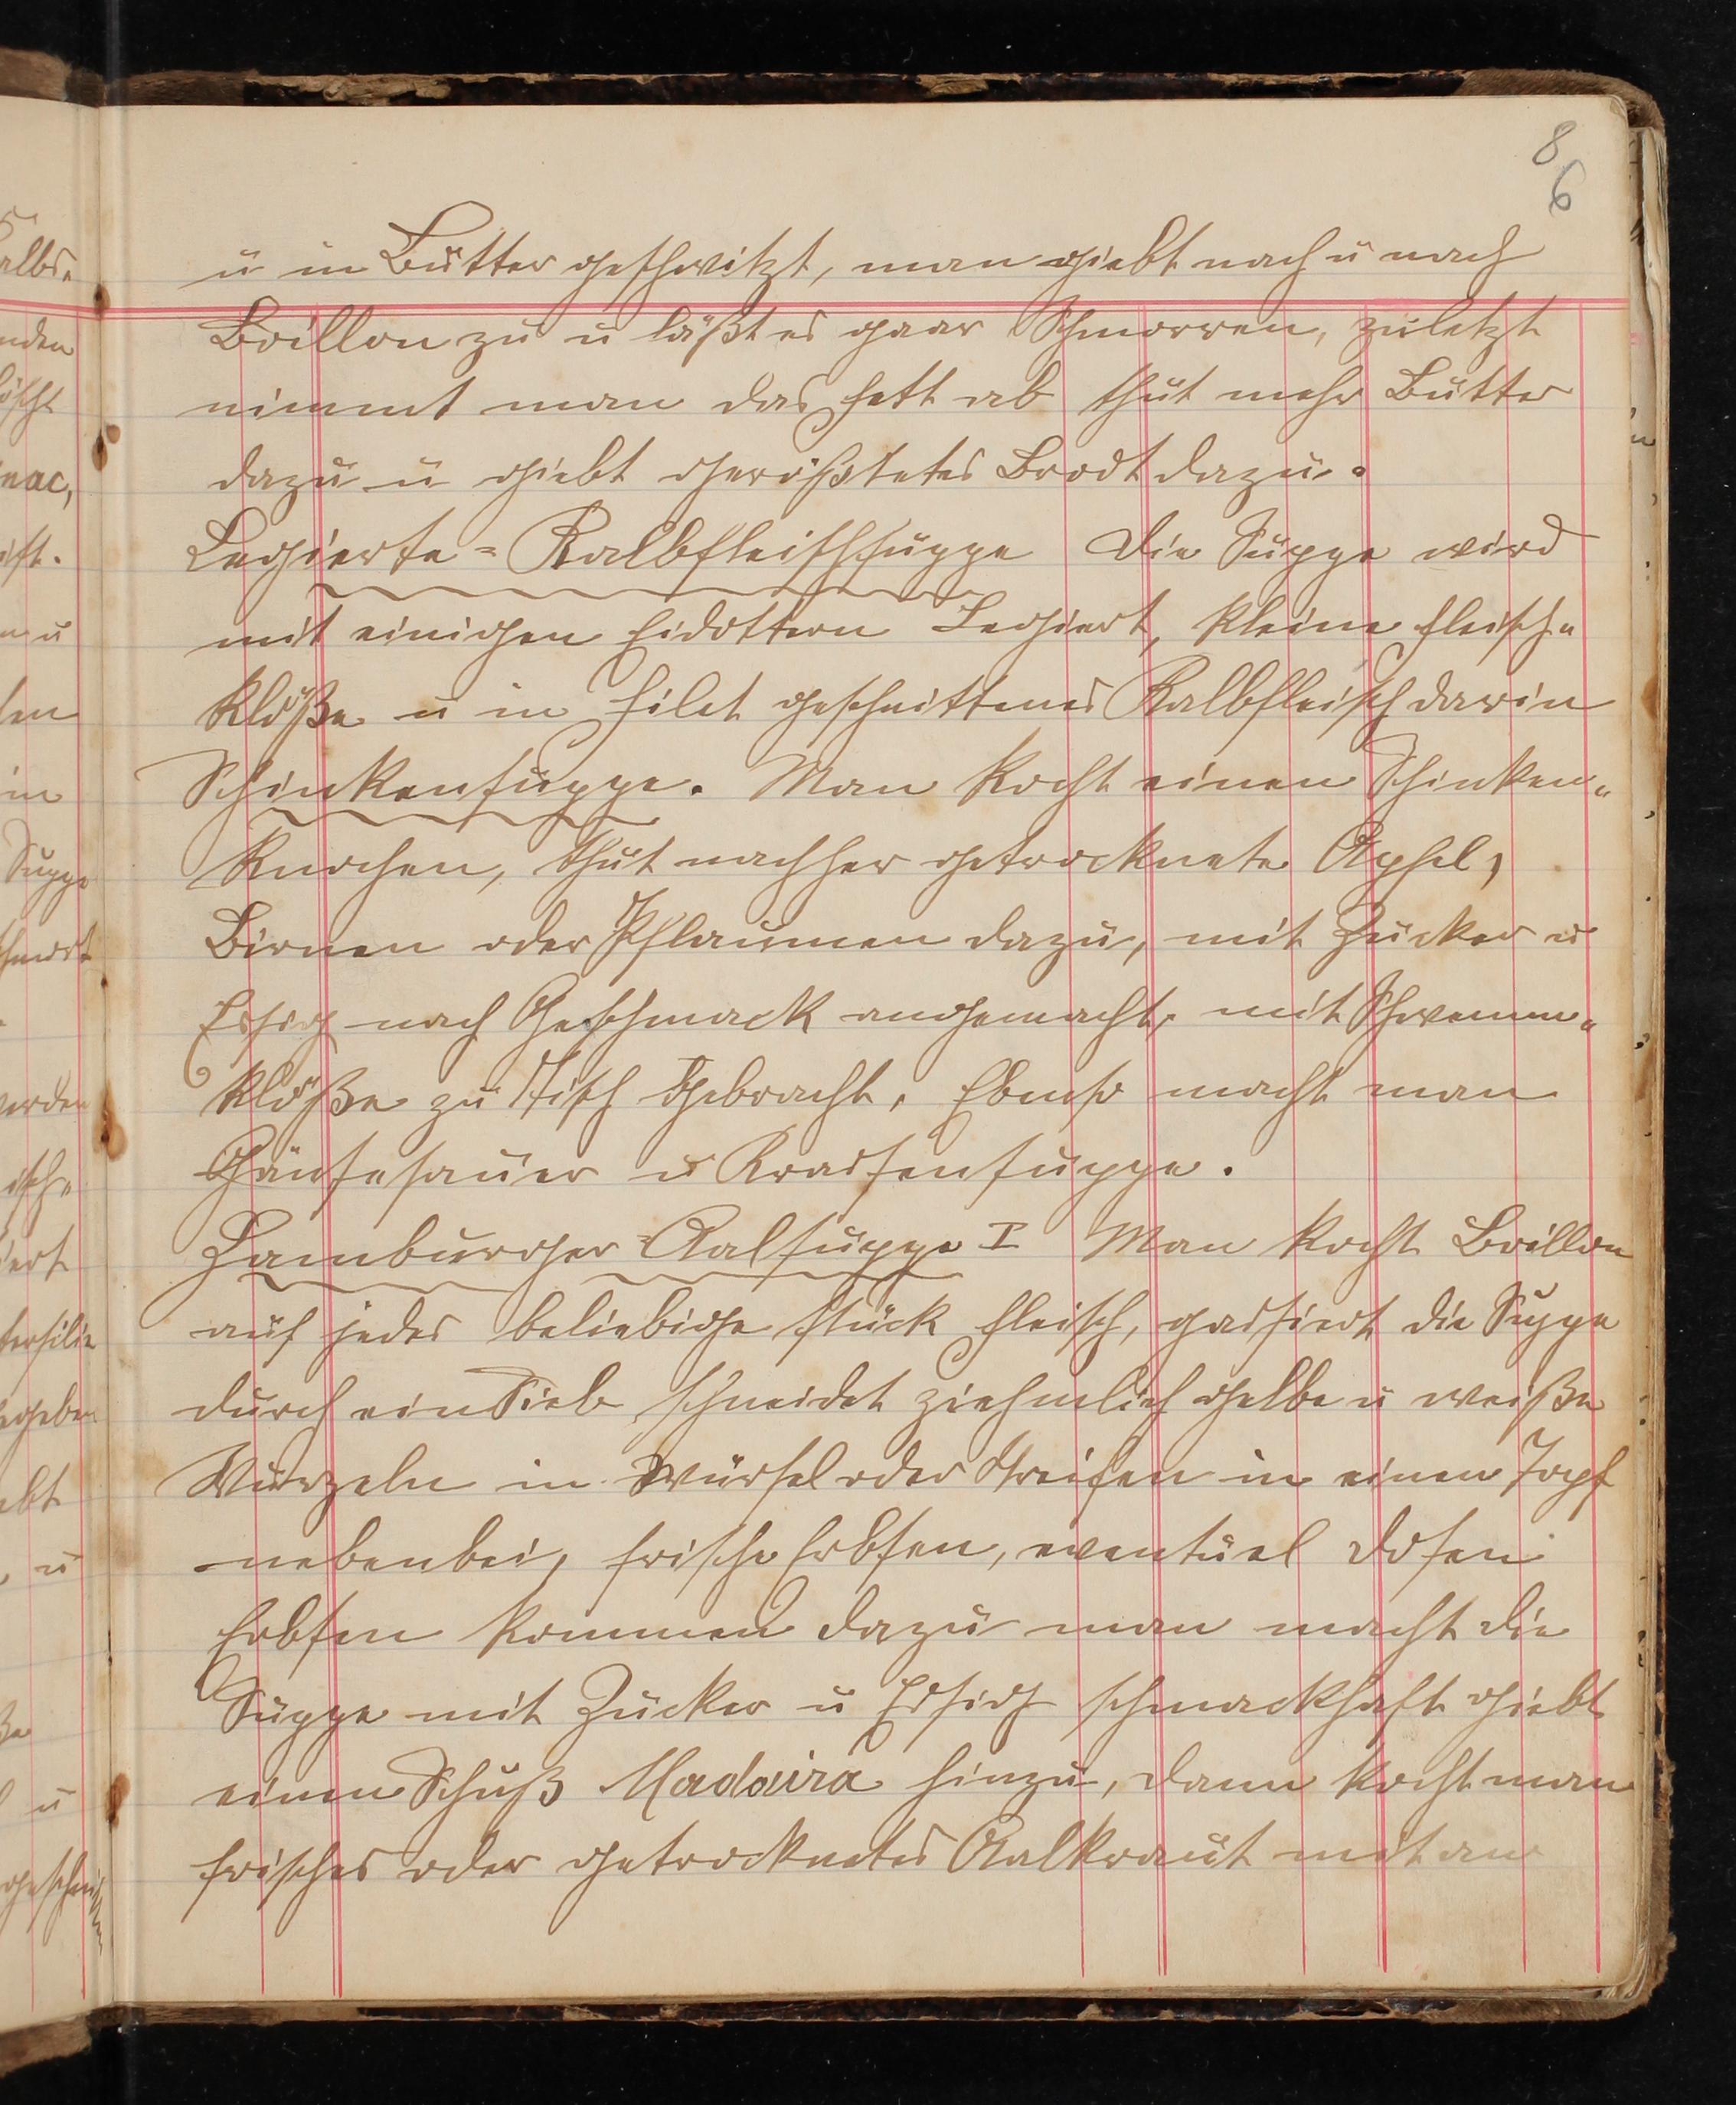 8
6
u in Butter geschwitzt, man giebt nach u nach
Boillon zu u läßt es gaar Schmorren, zuletzt
nimmt man das Fett ab thut mehr Butter
dazu u giebt gerößtetes Brodt dazu.
Legierte = Kalbfleischsuppe Die Suppe wird
mit einigen Eidottern Legiert, kleine Fleisch„
klöße u in Filet geschnittenes Kalbfleisch darin
Schinkensuppe. Man kocht einen Schinken„
knochen, thut nachher getrocknete Äpfel,
Birnen oder Pflaumen dazu, mit Zucker u
Essig nach Geschmack angemacht, mit Schwemm„
klöße zu Tisch Gebracht. Ebenso macht man
Gänsesauer u Krassensuppe.
Hamburger = Aalsuppe I Man kocht Boillon
auf jedes beliebige Stück Fleisch, passiert die Suppe
durch ein Sieb schneidet ziehmlich gelbe u weiße
Wurzeln in Würfel oder Streifen in einen Topf
nebenbei, frische Erbsen, eventuel Dosen
Erbsen kommen dazu man macht die
Suppe mit Zucker u Essig schmackhaft giebt
einen Schuß Madaira hinzu, dann kocht man
frisches oder getrocknetes Aalkraut mit an